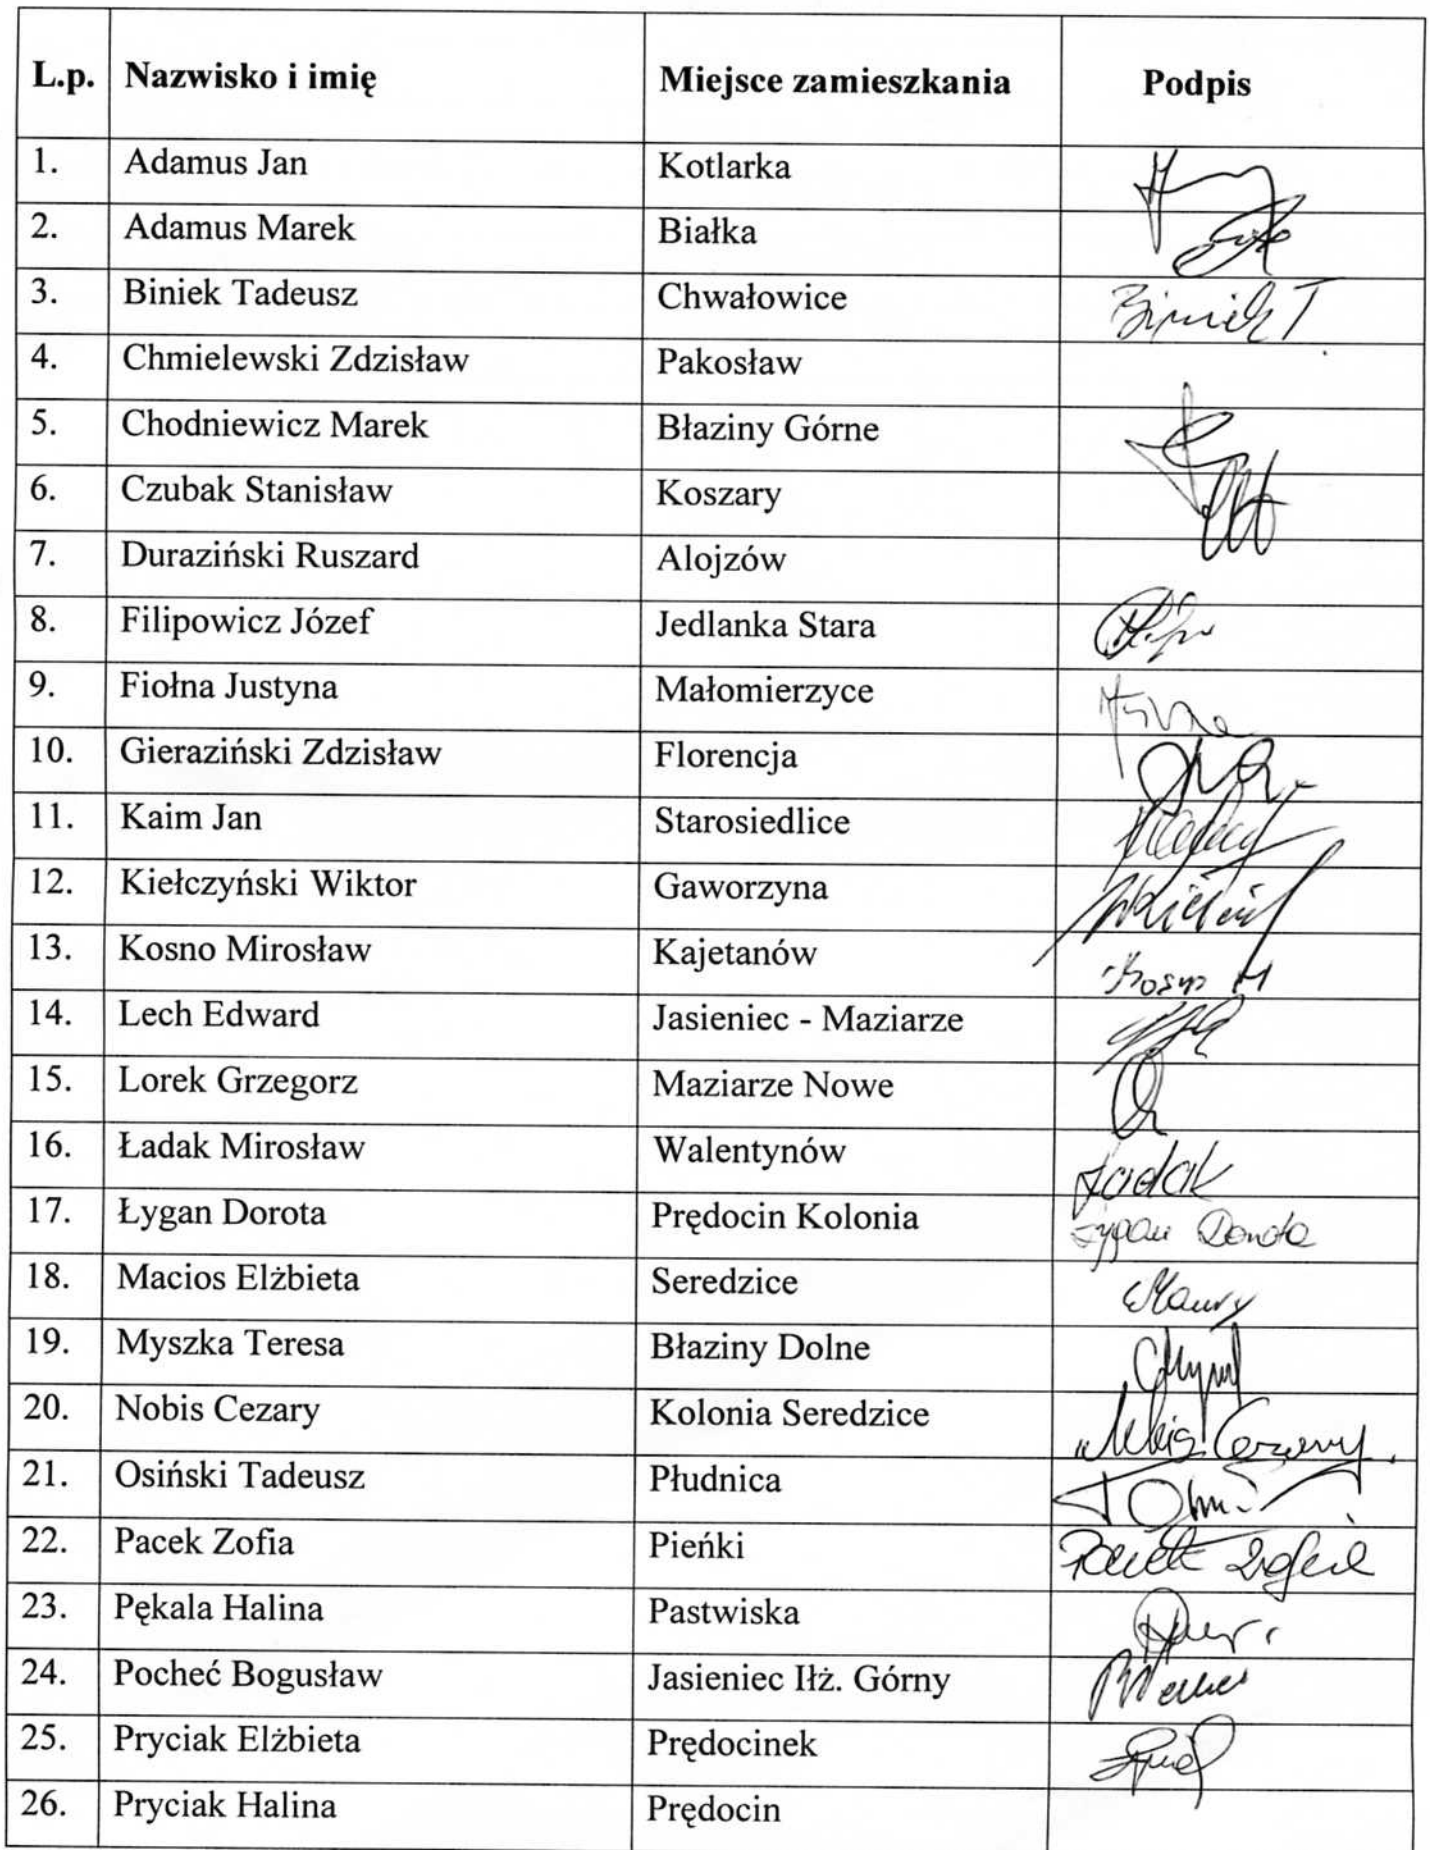 L.p. Nazwisko i imię Miejsce zamieszkania Podpis
1. Adamus Jan Kotlarka
2. Adamus Marek Białka
3. Biniek Tadeusz Chwałowice Biniek T.
4. Chmielewski Zdzisław Pakosław
5. Chodniewicz Marek Błaziny Górne
6. Czubak Stanisław Koszary
7. Duraziński Ruszard Alojzów
8. Filipowicz Józef Jedlanka Stara
9. Fiołna Justyna Małomierzyce
10. Gieraziński Zdzisław Florencja
11. Kaim Jan Starosiedlice
12. Kiełczyński Wiktor Gaworzyna
13. Kosno Mirosław Kajetanów Kosno M
14. Lech Edward Jasieniec - Maziarze
15. Lorek Grzegorz Maziarze Nowe
16. Ładak Mirosław Walentynów Ładak
17. Łygan Dorota Prędocin Kolonia Łygan Dorota
18. Macios Elżbieta Seredzice
19. Myszka Teresa Błaziny Dolne
20. Nobis Cezary Kolonia Seredzice Nobis Cezary
21. Osiński Tadeusz Płudnica
22. Pacek Zofia Pieńki Pacek Zofia
23. Pękala Halina Pastwiska
24. Pocheć Bogusław Jasieniec Iłż. Górny
25. Pryciak Elżbieta Prędocinek
26. Pryciak Halina Prędocin